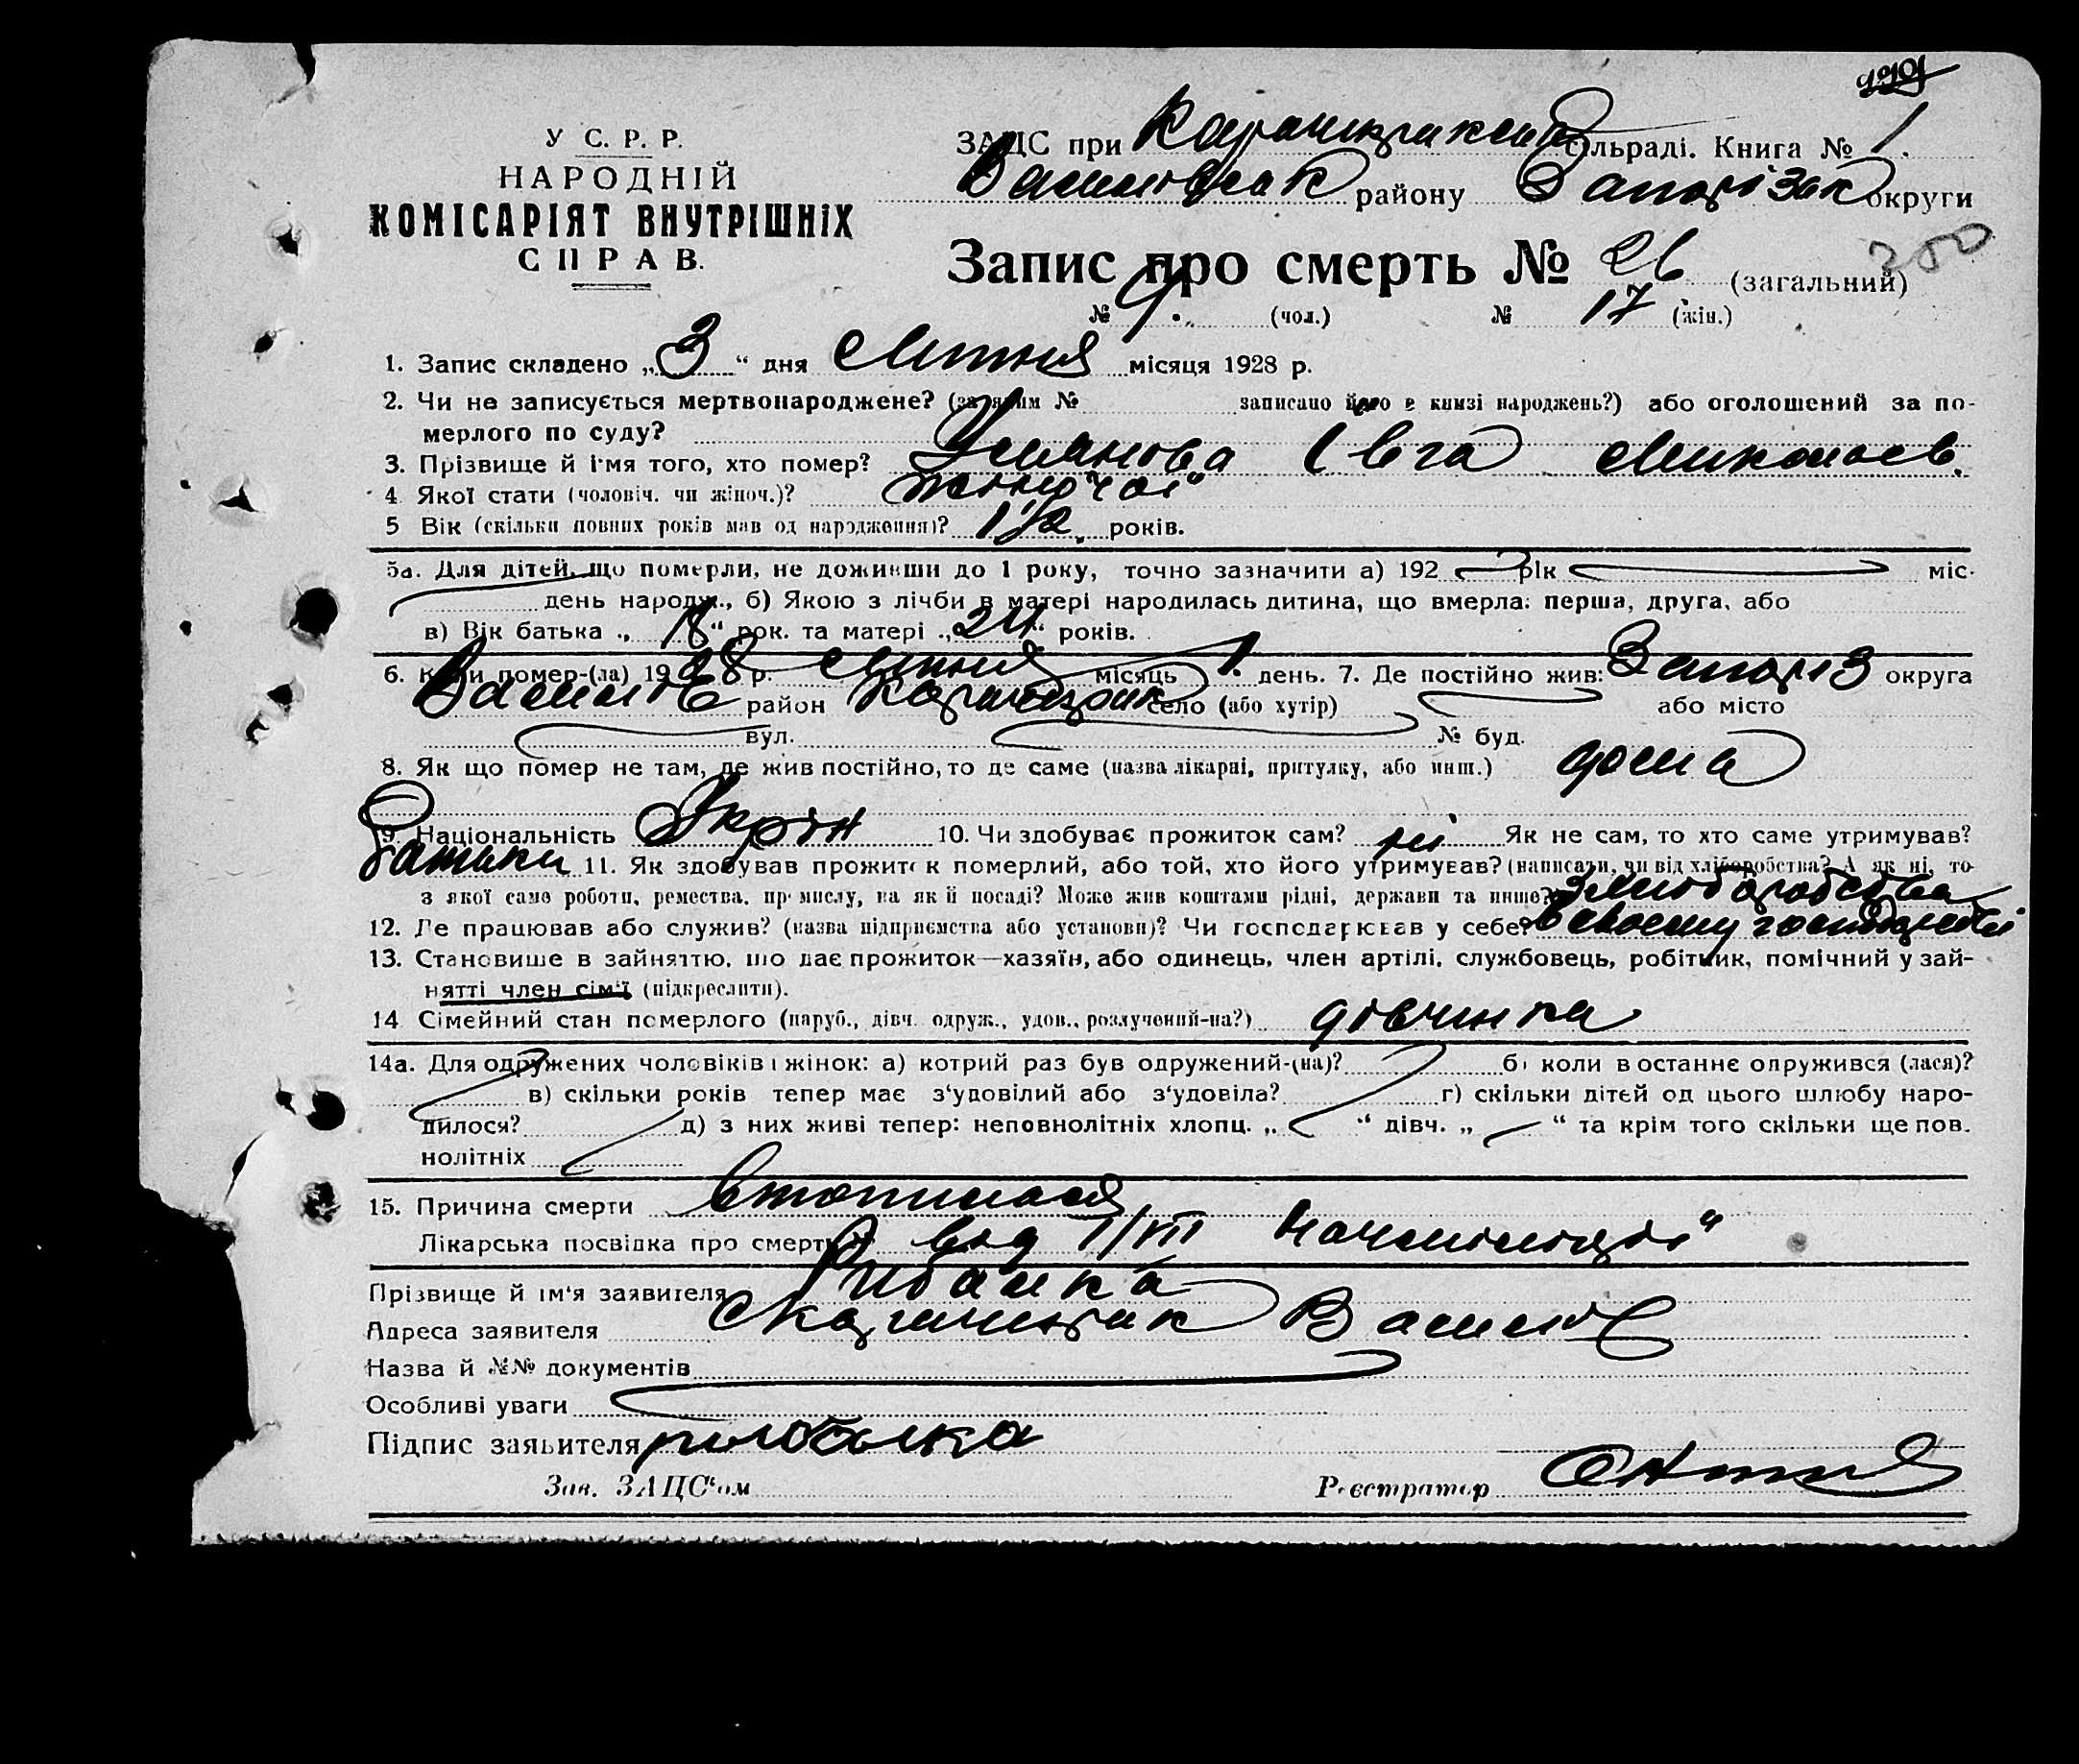 У С. Р. Р.
НАРОДНІЙ
КОМІСАРІЯТ ВНУТРІШНІХ
СПРАВ.
ЗАЦС при сільраді. Книга № 1.
району округи
Запис про смерть № 26 (загальний)
№ 9. (чол.) № 17 (жін.)
1. Запис складено „3“ дня Липня місяця 1928 р.
2. Чи не записується мертвонароджене? (за яким № записано його в книзі народжень?) або оголошений за по-
мерлого по суду?
3. Прізвище й і'мя того, хто помер? Уманова Івга Миколаєв.
4 Якої стати (чоловіч. чи жіноч.)? жіночої
5 Вік (скільки повних років мав од народження)? 1 1/2 років.
5а. Для дітей, що померли, не доживши до 1 року, точно зазначити а) 192 рік міс.
день народж., б) Якою з лічби в матері народилась дитина, що вмерла: перша, друга, або
в) Вік батька „ 18“ рок. та матері „24“ років.
6. Коли помер-(ла) 1928 р. Липня місяць 1 день. 7. Де постійно жив: Запоріз округа
Василів район село (або хутір) або місто
вул. № буд.
8. Як що помер не там, де жив постійно, то де саме (назва лікарні, притулку, або инш.) дома
9. Національність Україн 10. Чи здобуває прожиток сам? ні Як не сам, то хто саме утримував?
батьки 11. Як здобував прожиток померлий, або той, хто його утримував? (написати, чи від хліборобства? А як ні, то
з якої само роботи, ремества, промислу, на якій посаді? Може жив коштами рідні, держави та инше?)
12. Де працював або служив? (назва підприємства або установи)? Чи господарював у себе? в своему господарстві
13. Становище в зайняттю, що дає прожиток—хазяїн, або одинець, член артілі, службовець, робітник, помічний у зай-
нятті член сім'ї (підкреслити).
14 Сімейний стан померлого (паруб., дівч. одруж., удов., розлучений-на?) дівчинка
14а. Для одружених чоловіків і жінок: а) котрий раз був одружений-(на)? б) коли востаннє одружився (лася)?
в) скільки років тепер має з'удовілий або з'удовіла? г) скільки дітей од цього шлюбу наро-
дилося? д) з них живі тепер: неповнолітніх хлопц. „ “ дівч. „ “ та крім того скільки ще пов.
нолітніх
15. Причина смерти втопилася
Лікарська посвідка про смерть від 1/VII
Прізвище й ім'я заявителя Рибалка
Адреса заявителя Василів
Назва й №№ документів
Особливі уваги
Підпис заявителя рибалка
Зав. ЗАЦС'ом Реєстратор